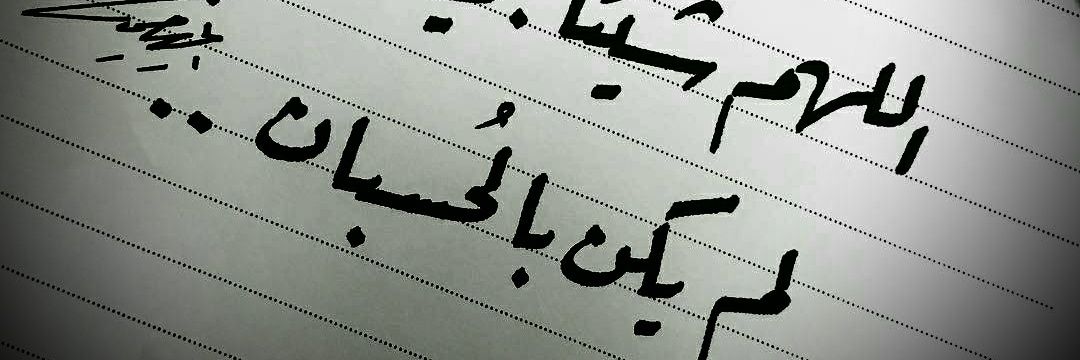 اللهم شيئا
لم يكن بالحُسبان ..